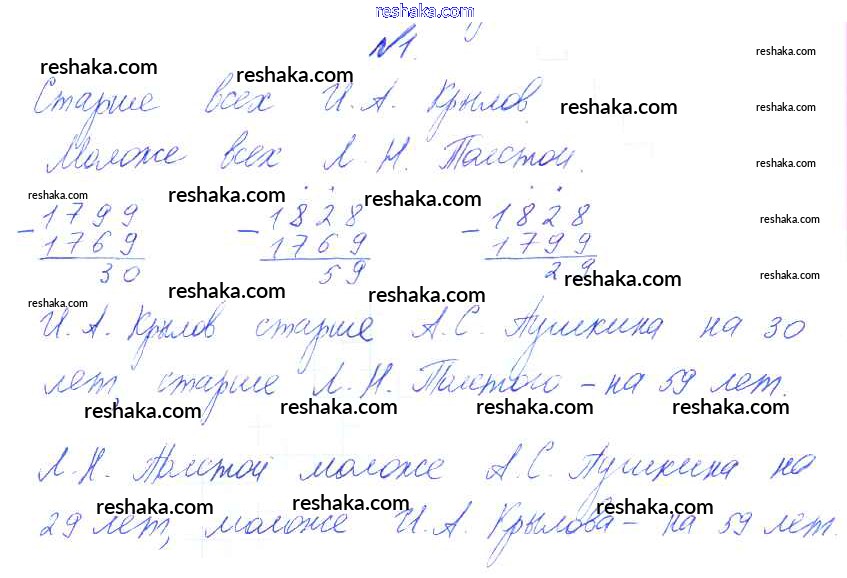 reshaka.com
№1.
reshaka.com
reshaka.com
reshaka.com
Старше всех И.А. Крылов.
reshaka.com
reshaka.com
Моложе всех Л.Н. Толстой.
reshaka.com
reshaka.com
reshaka.com
reshaka.com
- 1799 - 1828 - 1828
1769 1769 1799
30 59 29
reshaka.com
reshaka.com
reshaka.com
reshaka.com
reshaka.com
reshaka.com
И.А. Крылов старше А.С. Пушкина на 30
лет, старше Л.Н. Толстого – на 59 лет.
reshaka.com
reshaka.com
reshaka.com
reshaka.com
Л.Н. Толстой моложе А.С. Пушкина на
reshaka.com
reshaka.com
reshaka.com
29 лет, моложе И.А. Крылова – на 59 лет.